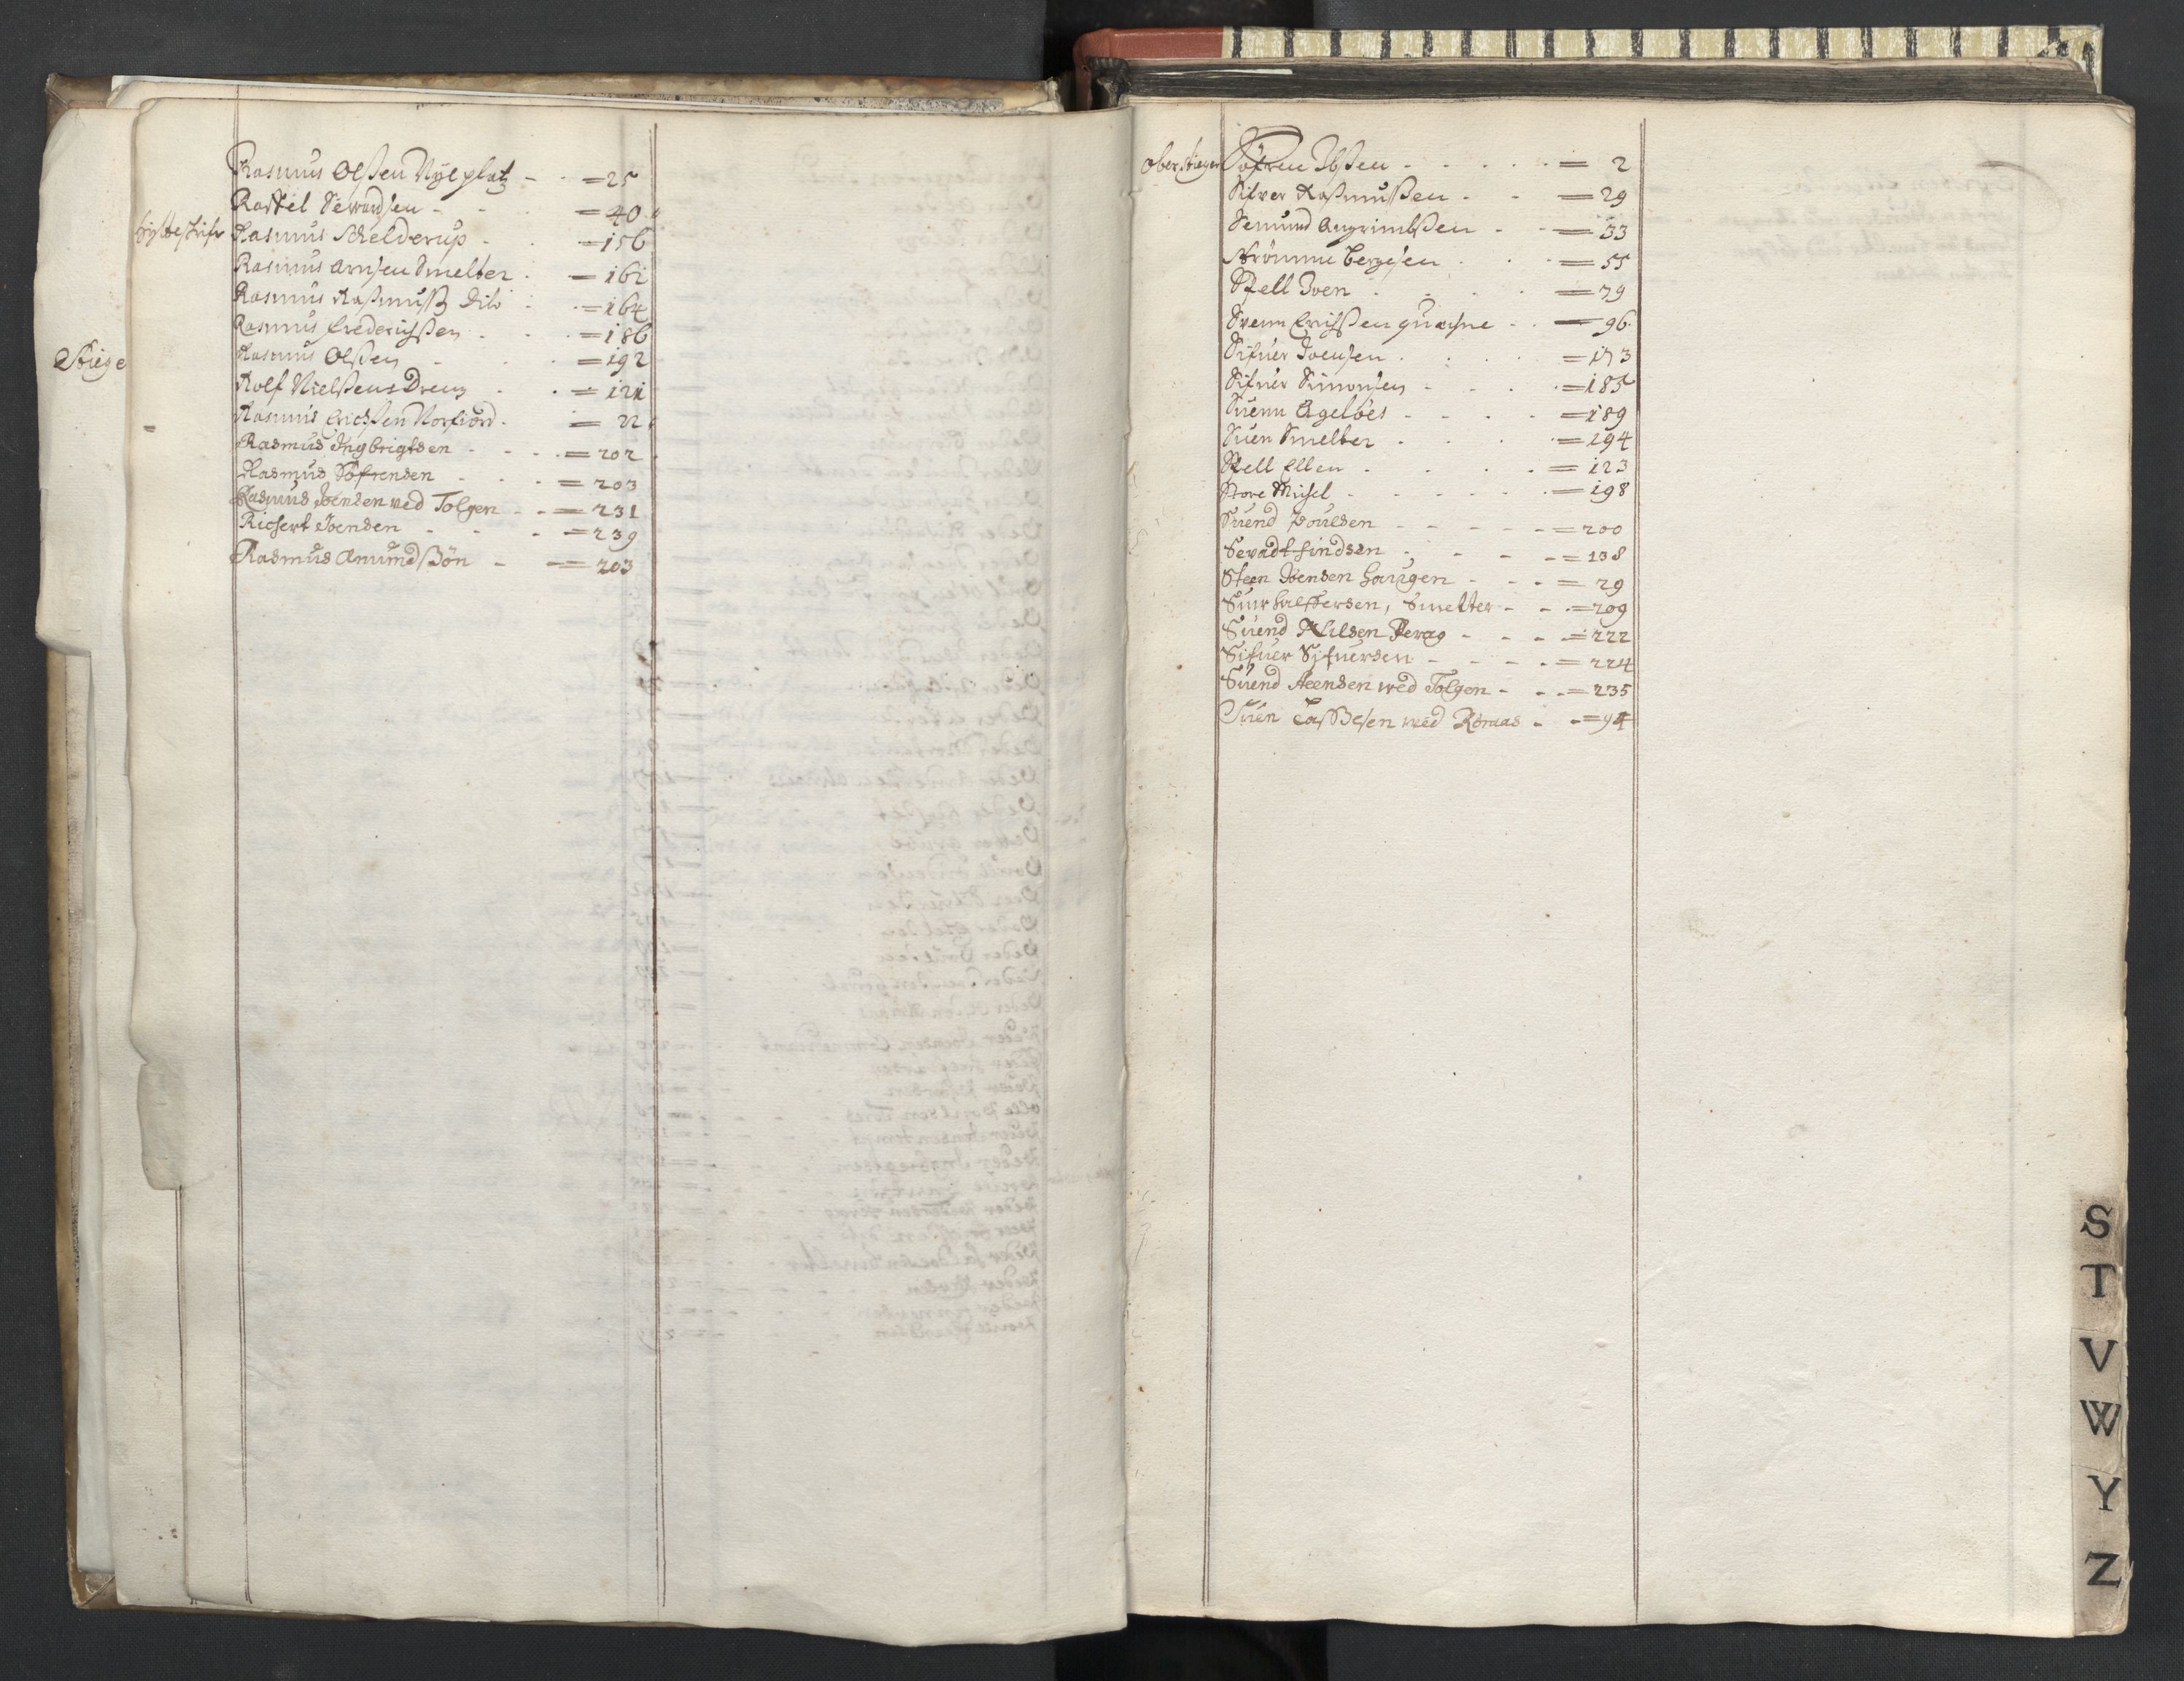 Rasmus Olßen Nÿeplatz - - = 25
Raskel Sewardsen - - = 40
hÿtteskrifr Rasmus Schelderup - - = 156
Rasmus Arnsen Smelter - = 161
Rasmus Raßmuß dito - = 164
Rasmus Frederichßen - - = 186
Stiege
Rasmus Olßen - - = 192
Rolf Nielßens Dreng - - = 121
Rasmus Erichßen Norfiord - = 22
Rasmus Ingbrigtsen - - - = 202
Rasmus Søfrensen - - - = 203
Rasmus Joensen ved Tolgen - - = 231
Richert Joensen - - - = 239
Rasmus Amundßøn - - = 203
Oberstieger Søfren Ibßen - - - - = 2
Sifver Raßmußen - - = 29
Semund Angrimbßen - - = 33
Strömme Bergesen - - = 55
Skell Joen - - - - = 79
Svenn Erichßen quarne - - = 96
Sifuer Joensen - - - = 173
Sifuer Simonsen - - - = 185
Suenn Ageløes - - - - = 189
Suen Smelter - - - - = 194
Skell Ellen - - - - = 123
Store Michel - - - - = 198
Suend Poulsen - - - - = 200
Sevadt findsen - - - - = 138
Steen Joensen Haugen - - - = 29
Siur halfversen, Smelter - - = 209
Suend Nilsen Perag - - - = 222
Sifuer Sifuersen - - - - = 224
Suend Steensen wed Tolgen - - - = 235
Suen Laßesen wed Röraas - - = 94
S
T
V
W
Y
Z